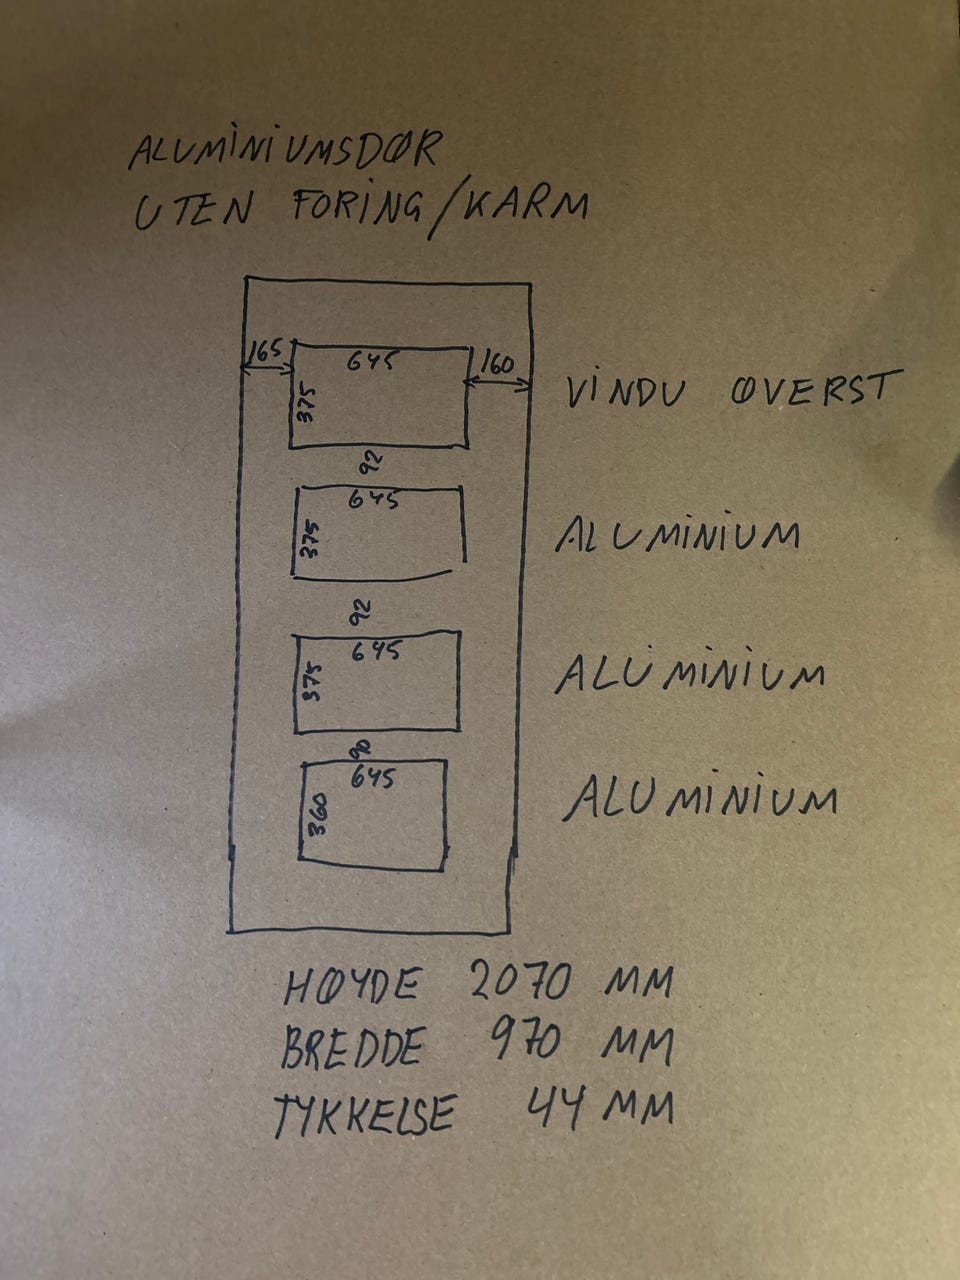 ALUMINIUMSDØR
UTEN FORING/KARM
165
645
160
375
VINDU ØVERST
92
645
375
ALUMINIUM
92
645
375
ALUMINIUM
90
645
360
ALUMINIUM
HØYDE 2070 MM
BREDDE 970 MM
TYKKELSE 44 MM